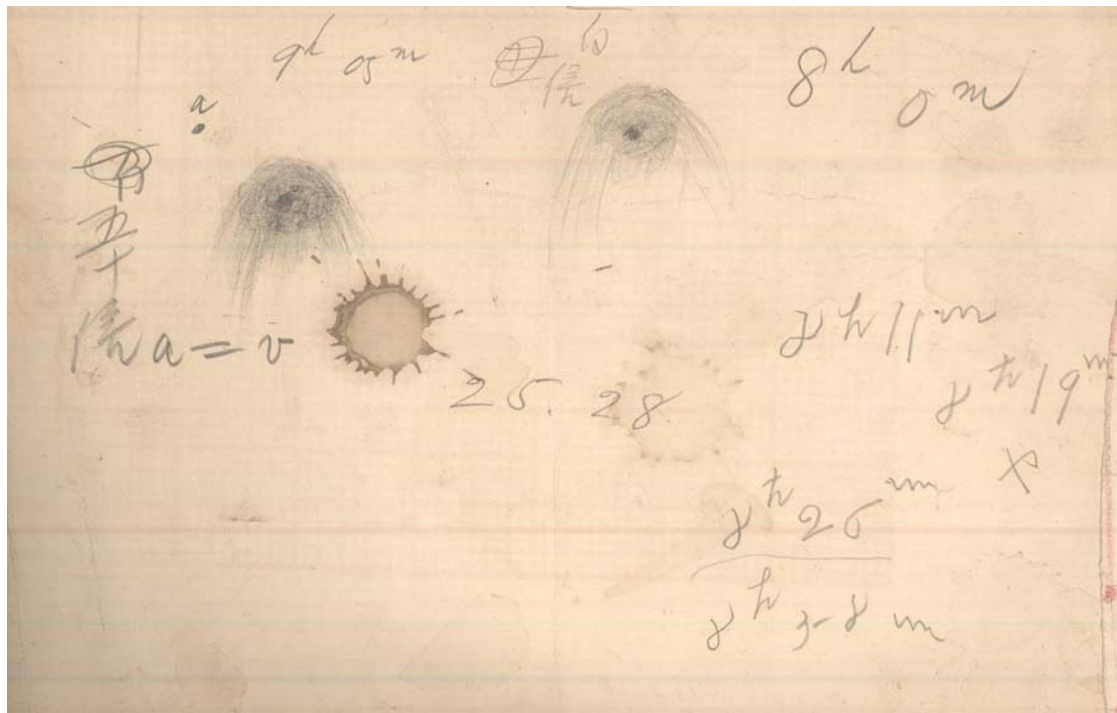 9h 05m
百
倍
8h 0m
a
五
十
倍
a = v
25. 28
8h 11m
8h 19m
8h 26m
8h 38m